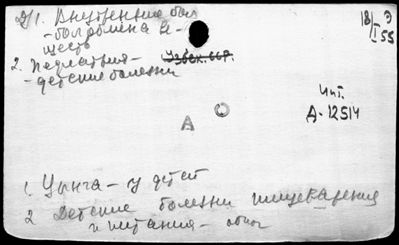 1. Внутренние бол
- бол. обмена в-
ществ
2. Педиатрия -
Узбек. ССР.
- детские болезни
18/I 55
Э
Инт.
Д-12514
А
1. Цынга - у детей
2 Детские болезни пищеварения
и питания -